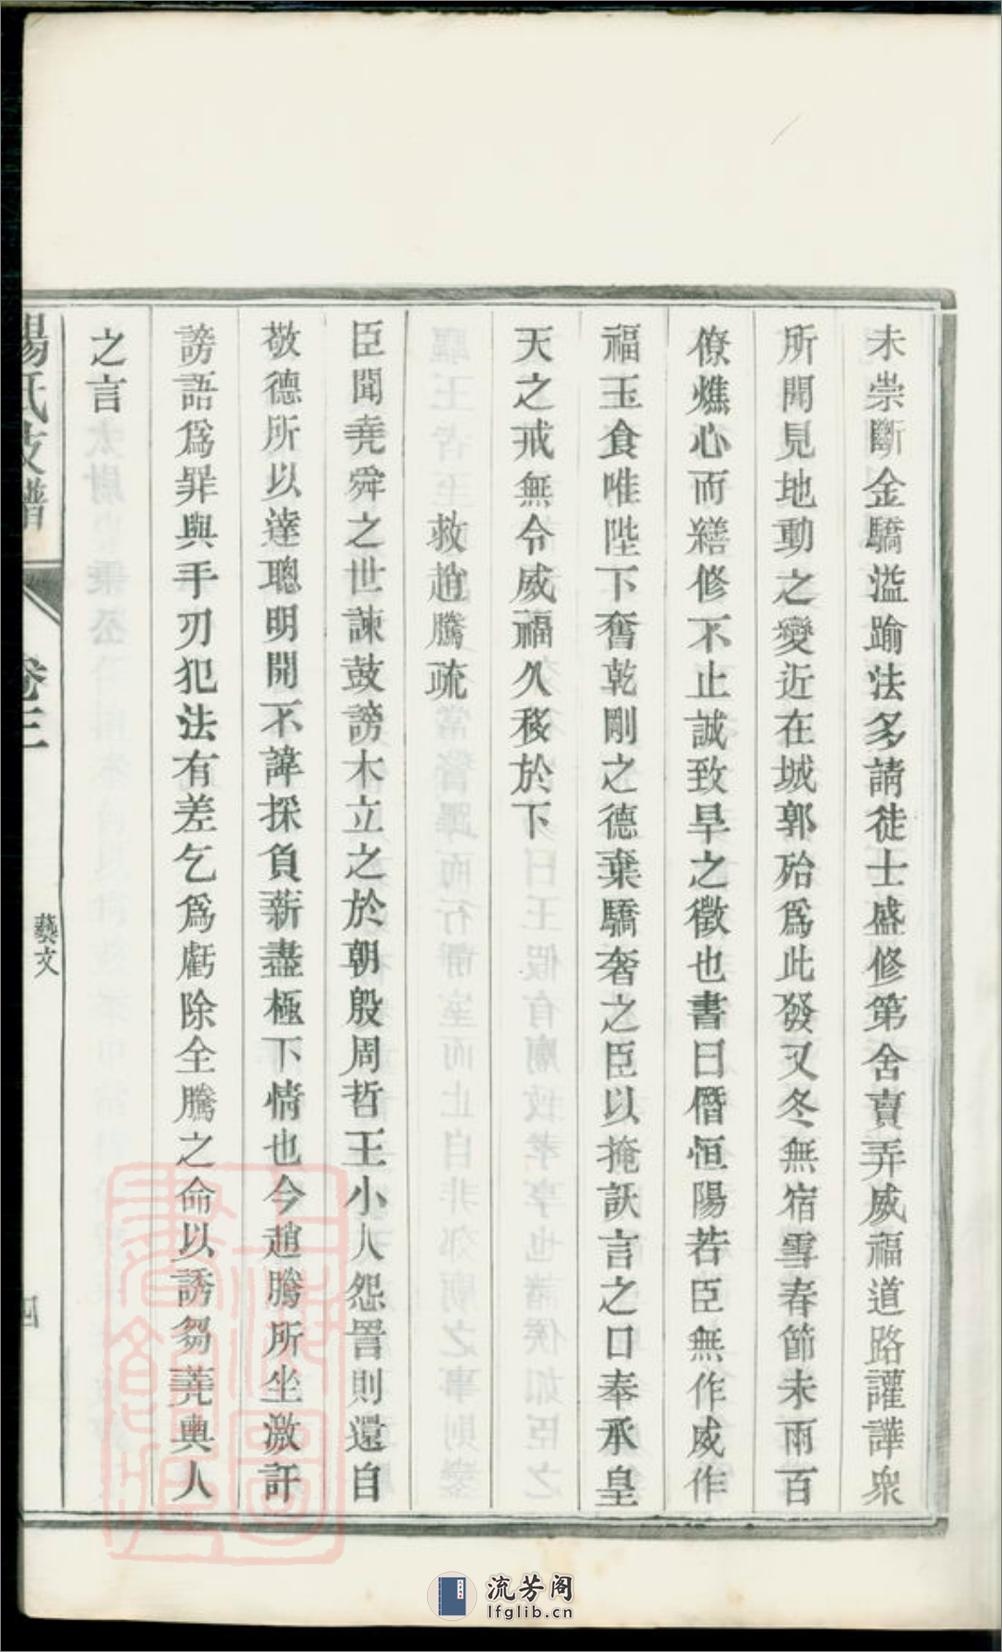 未崇斷金驕溢踰法多請徒士盛修第舍賣弄威福道路讙譁衆
所聞見地動之變近在城郭殆爲此發又冬無宿雪春節未雨百
僚燋心而繕修不止誠致旱之徵也書曰僭恒陽若臣無作威作
福玉食唯陛下奮乾剛之德棄驕奢之臣以掩訞言之口奉承皇
天之戒無令威福久移於下
救趙騰疏
臣聞堯舜之世諫鼓謗木立之於朝殷周哲王小人怨詈則還自
敬德所以達聰明開不諱採負薪盡極下情也今趙騰所坐激訐
謗語爲罪與手刃犯法有差乞爲虧除全騰之命以誘芻蕘輿人
之言
楊氏支譜
卷三
藝文
四
流芳阁
lfglib.cn